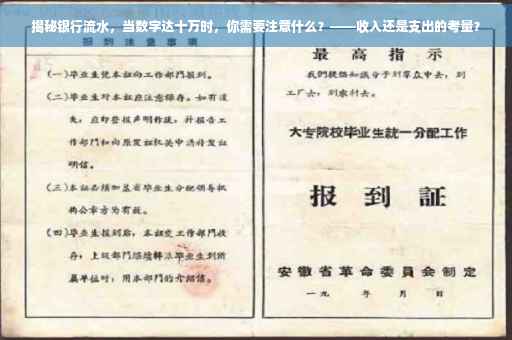 揭秘银行流水，当数字达十万时，你需要注意什么？——收入还是支出的考量？
报到注意事项
(一)毕业生凭本证向工作部门报到。
(二)毕业生对本证应注意保存。如有遗
失，应即登报声明作废，并报告工
作部门和向原发证机关申请补发证
明信。
(三)本证必须加盖省毕业生分配领导机
构公章方为有效。
(四)毕业生报到后，本证交工作部门收
存；上级部门
属单位时，用本部门的介绍信。
最高指示
我们提倡知识分子到群众中去，到
工厂去，到农村去。
大专院校毕业生统一分配工作
报到証
安徽省革命委員会制定
一九 年 月 日